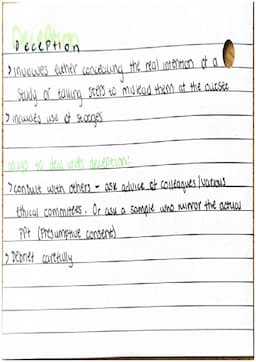 Deception
Deception
> involves either concealing the real intention of a
study or taking steps to mislead them at the outset
> includes use of stooges
ways to deal with deception:
> consult with others - ask advice of colleagues/various
ethical commitees. Or ask a sample who mirror the actual
PPT (presumptive consent)
> Debrief carefully